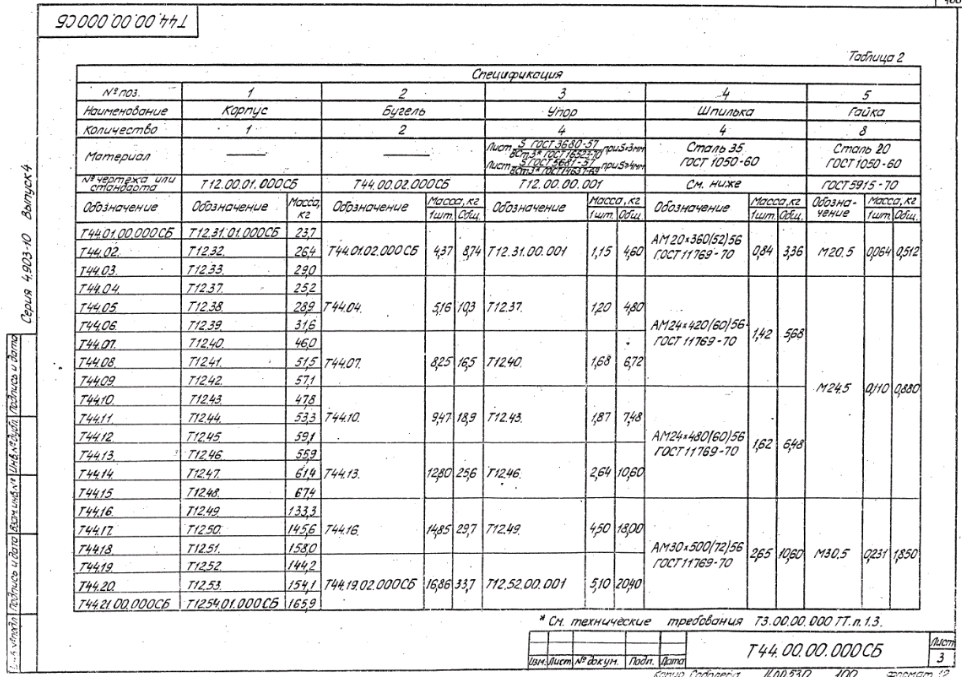 Т44.00.00.000СБ
Таблица 2
Спецификация
№ поз. 1 2 3 4 5
Наименование Корпус Бугель Упор Шпилька Гайка
Количество 1 2 4 4 8
Материал — — Лист 5 ГОСТ 3680-57 / ВСт.3* ГОСТ 16523-70 при S≤3мм Сталь 35 Сталь 20
Лист 5 ГОСТ 5681-57 / ВСт3* ГОСТ 14637-69 при S≥4мм ГОСТ 1050-60 ГОСТ 1050-60
№ чертежа или стандарта Т12.00.01.000СБ Т44.00.02.000СБ Т12.00.00.001 См. ниже ГОСТ 5915-70
Обозначение Обозначение Масса, кг Обозначение Масса, кг 1шт. Общ. Обозначение Масса, кг 1шт. Общ. Обозначение Масса, кг 1шт. Общ. Обозна-чение Масса, кг 1шт. Общ.
Т44.01.00.000СБ Т12.31.01.000СБ 23,7
Т44.02. Т12.32. 26,4 Т44.01.02.000СБ 4,37 8,74 Т12.31.00.001 1,15 4,60 АМ20×360(52)56 ГОСТ 11769-70 0,84 3,36 М20.5 0,064 0,512
Т44.03. Т12.33. 29,0
Т44.04. Т12.37. 25,2
Т44.05 Т12.38. 28,9 Т44.04. 5,16 10,3 Т12.37. 1,20 4,80
Т44.06. Т12.39. 31,6 АМ24×420(60)56 ГОСТ 11769-70 1,42 5,68
Т44.07. Т12.40. 46,0
Т44.08. Т12.41. 51,5 Т44.07. 8,25 16,5 Т12.40. 1,68 6,72
Т44.09. Т12.42. 57,1 М24.5 0,110 0,880
Т44.10. Т12.43. 47,8
Т44.11. Т12.44. 53,3 Т44.10. 9,47 18,9 Т12.43. 1,87 7,48
Т44.12 Т12.45. 59,1 АМ24×480(60)56 ГОСТ 11769-70 1,62 6,48
Т44.13. Т12.46. 55,9
Т44.14. Т12.47. 61,4 Т44.13. 12,80 25,6 Т12.46. 2,64 10,60
Т44.15 Т12.48. 67,4
Т44.16. Т12.49 133,3
Т44.17. Т12.50. 145,6 Т44.16. 14,85 29,7 Т12.49. 4,50 18,00
Т44.18. Т12.51. 158,0 АМ30×500(72)56 ГОСТ 11769-70 2,65 10,60 М30.5 0,231 1,850
Т44.19 Т12.52 144,2
Т44.20. Т12.53. 154,1 Т44.19.02.000СБ 16,86 33,7 Т12.52.00.001 5,10 20,40
Т44.21.00.000СБ Т12.54.01.000СБ 165,9
* См. технические требования Т3.00.00.000 ТТ. п. 1.3.
Изм. Лист № докум. Подп. Дата
Т44.00.00.000СБ
Лист
3
Формат 12
Серия 4.903-10 Выпуск 4
Подпись и дата
Взам. инв. №
Подпись и дата